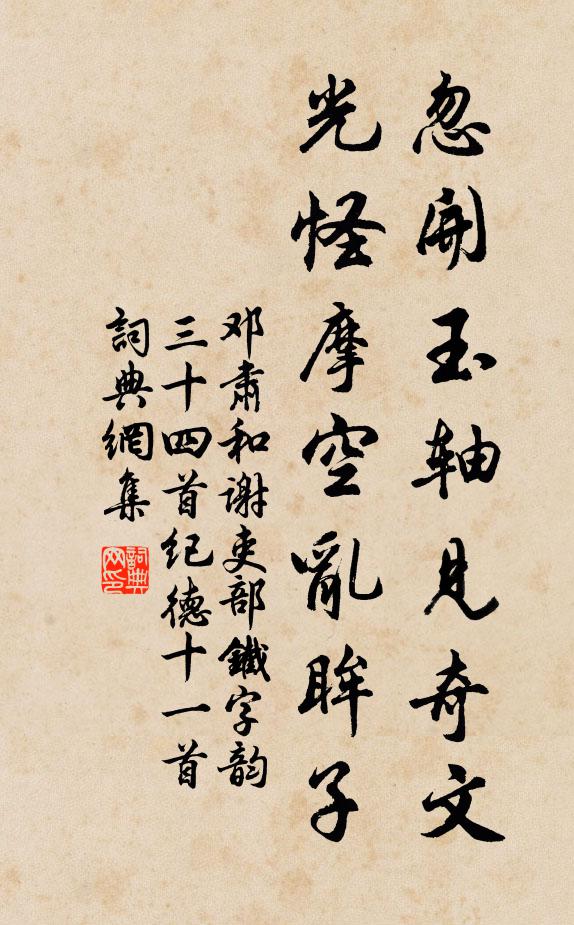 忽開玉轴見奇文
光怪摩空亂眸子
邓肅和谢吏部鐵字韵
三十四首纪德十一首
詞典網集
詞典网印